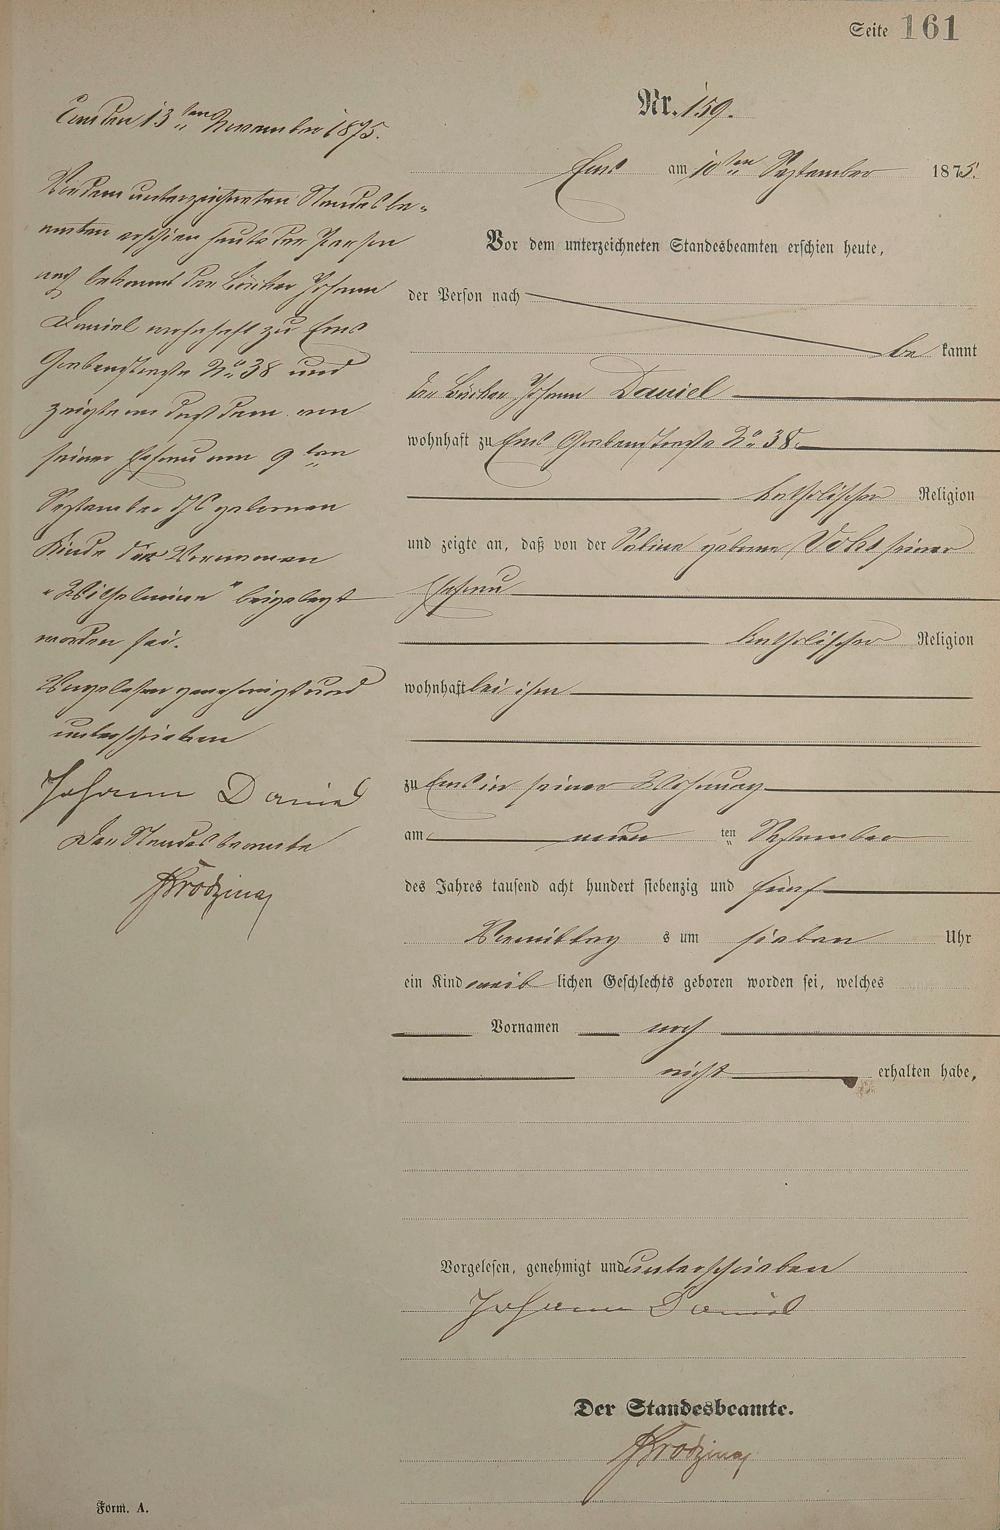 Seite 161
Ems den 13ten November 1875.
Vor dem unterzeichneten Standesbe-
amten erschien heute der Person
nach bekannt der Bäcker Johann
Daniel wohnhaft zu Ems
Grabenstraße No 38 und
zeigte an daß dem von
seiner Ehefrau am 9ten
September geborenen
Kinde der Vornamen
"Wilhelmine" beigelegt
worden sei.
Vorgelesen genehmigt und
unterschrieben
Johann Daniel
Der Standesbeamte
Nr. 159.
Ems am 10ten September 1875.
Vor dem unterzeichneten Standesbeamten erschien heute,
der Person nach
be kannt
der Bäcker Johann Daniel
wohnhaft zu Ems Grabenstraße No 38.
katholischer Religion
und zeigte an, daß von der geborene seiner
Ehefrau
katholischer Religion
wohnhaft bei ihm
zu Ems in seiner Wohnung
am neun ten September
des Jahres tausend acht hundert siebenzig und fünf
Vormittag s um sieben Uhr
ein Kind weib lichen Geschlechts geboren worden sei, welches
Vornamen noch
nicht erhalten habe,
Vorgelesen, genehmigt und unterschrieben
Johann Daniel
Der Standesbeamte.
Form. A.